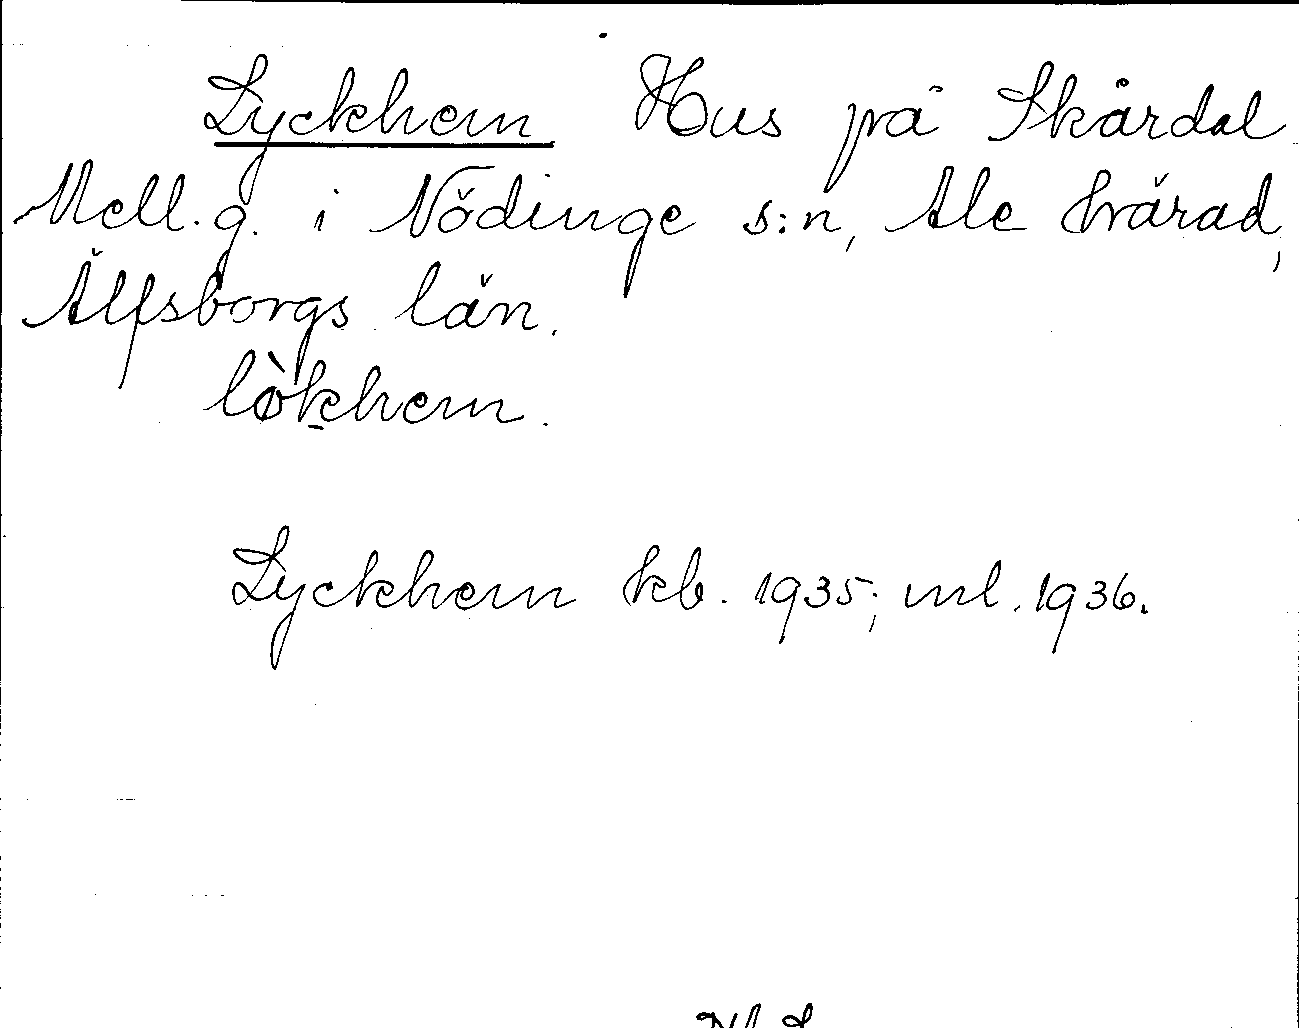 Lyckhem Hus på Skårdal
Mell.g. i Nödinge s:n, Ale härad,
Älfsborgs län.
lø̀khem.
Lyckhem kb. 1935; ml. 1936.